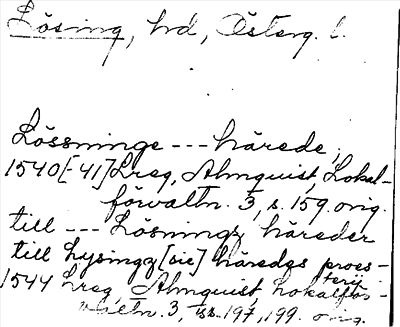 Lösing, hd, Österg. l.
Lössninge --- härede,
1540[-41] Lreg, Almquist, Lokal-
förvaltn. 3, s. 159. orig.
till --- Lösningz häreder
till Lysingz [sic] häredgs proes-
terij
1544 Lreg, Almquist, Lokalför-
valtn. 3, ss. 197, 199. orig.